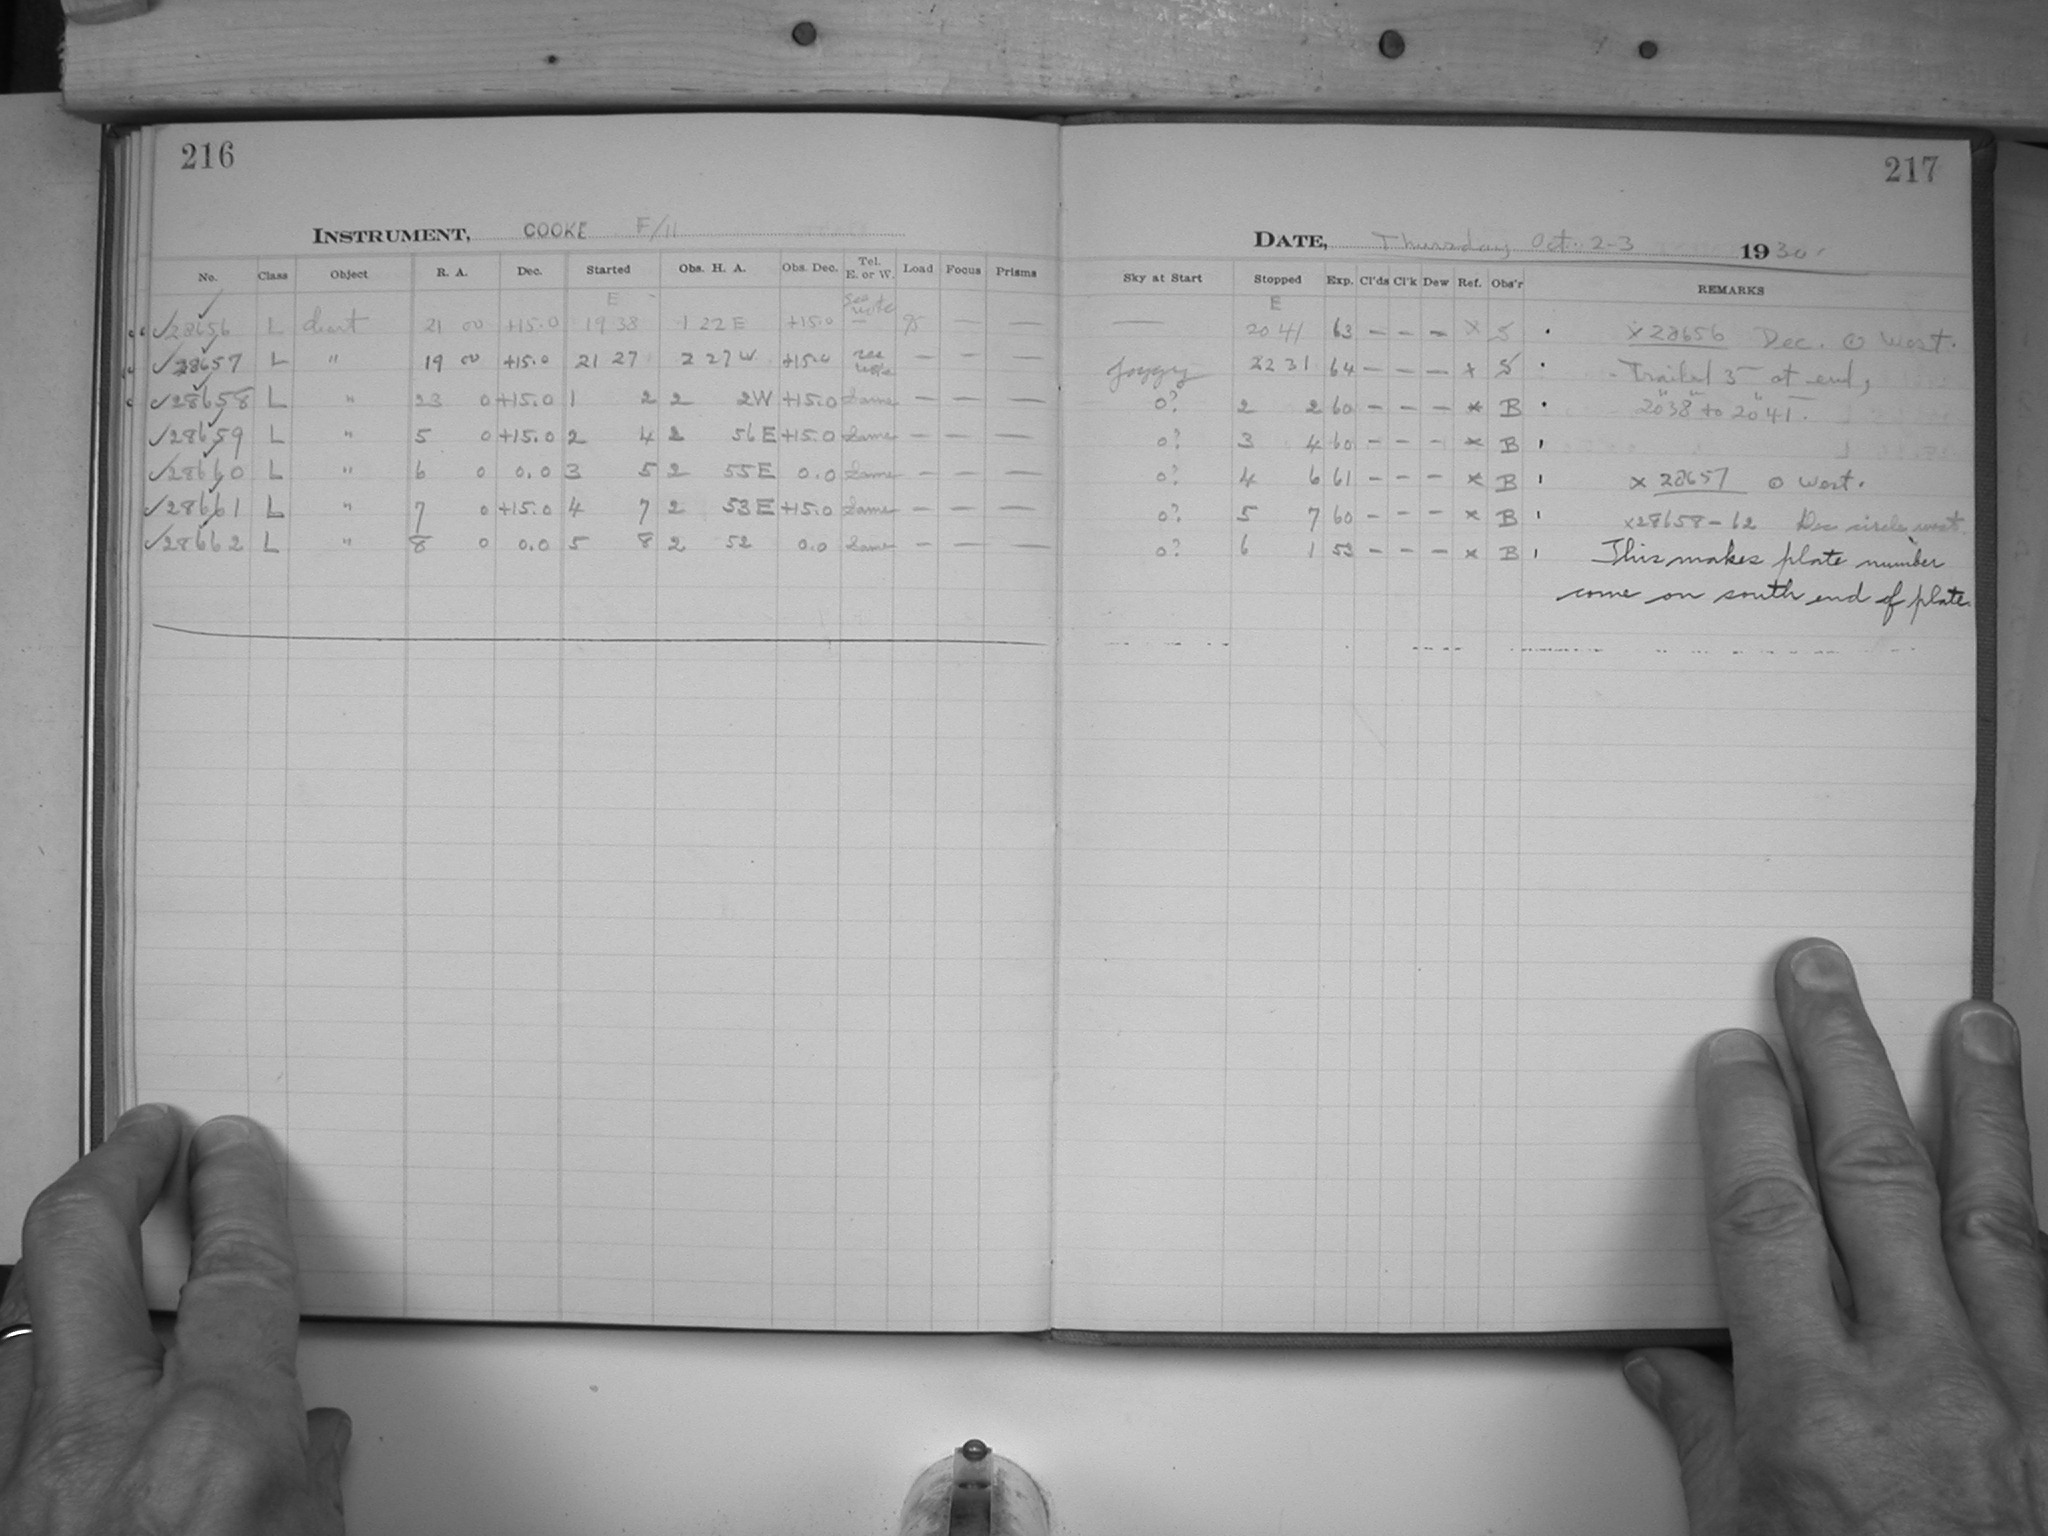 216
INSTRUMENT, COOKE F/11
No. Class Object R. A. Dec. Started Obs. H. A. Obs. Dec. Tel. E. or W. Load Focus Prisms
E see note
✓28656 L 21 00 +15.0 19 38 1 22 E +15.0 — — —
✓28657 L " 19 00 +15.0 21 27 2 27 W +15.0 see note — — —
✓28658 L " 23 0 +15.0 1 2 2 2W +15.0 Same — — —
✓28659 L " 5 0 +15.0 2 4 2 56 E +15.0 Same — — —
✓28660 L " 6 0 0.0 3 5 2 55 E 0.0 Same — — —
✓28661 L " 7 0 +15.0 4 7 2 53 E +15.0 Same — — —
✓28662 L " 8 0 0.0 5 8 2 52 0.0 Same — — —
217
DATE, Thursday Oct. 2-3 1930
Sky at Start Stopped Exp. Cl'ds Cl'k Dew Ref. Obs'r REMARKS
E
— 20 41 63 — — — x S x 28656 Dec. ⊙ West.
foggy 22 31 64 — — — x S Trailed 3— at end,
0? 2 2 60 — — — x B 20 38 to 20 41.
0? 3 4 60 — — — x B
0? 4 6 61 — — — x B x 28657 ⊙ west.
0? 5 7 60 — — — x B x28658-62 Dec circle west.
0? 6 1 53 — — — x B This makes plate number
come on south end of plate.